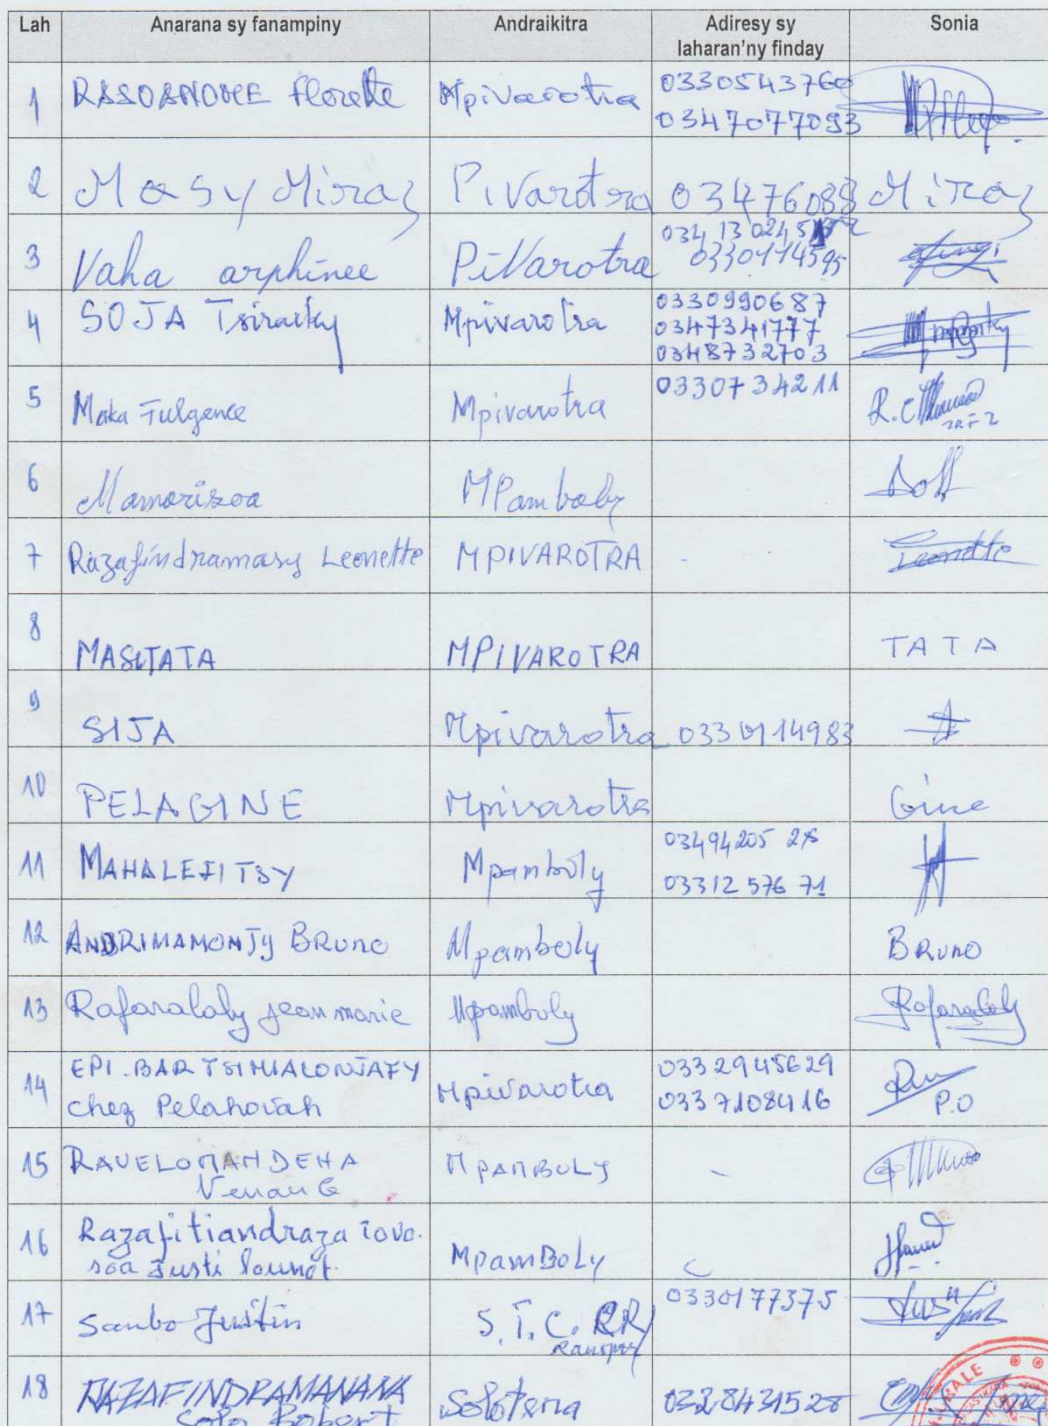 Lah Anarana sy fanampiny Andraikitra Adiresy sy laharan'ny finday Sonia
1 RASOANOME Florette Mpivarotra 0330543760
0347077093
2 Masy Miraz Pivarotra 03476088 Miraz
3 Vaha arphinee Pivarotra 034 13 0245
4 SOJA Tsiraiky Mpivarotra 0330990687
0347341777
0348732703
5 Maka Fulgence Mpivarotra 0330734211
6 Mamorisoa MPamboly
7 Razafindramasy Leonette MPIVAROTRA - Leonette
8 MASITATA MPIVAROTRA TATA
9 SIJA Mpivarotra 0330114983
10 PELAGINE Mpivarotra Gine
11 MAHALEJITSY Mpamboly 03494205 28
03312 576 71
12 ANDRIMAMONJY BRUNO Mpamboly BRUNO
13 Rafaralaly jean marie Mpamboly Rafaralaly
14 EPI.BAR TSIMIALONJAFY Mpivarotra 0332945629
chez Pelahovah 0337108416 P.O
15 RAVELOMANDEHA MPAMBOLY -
16 Razafitiandraza MpamBoly
17 Sambo Justin S.T.C. RR/ 0330177375
18 RAZAFINDRAMANANA Solotena 0328431528
Solo Robert